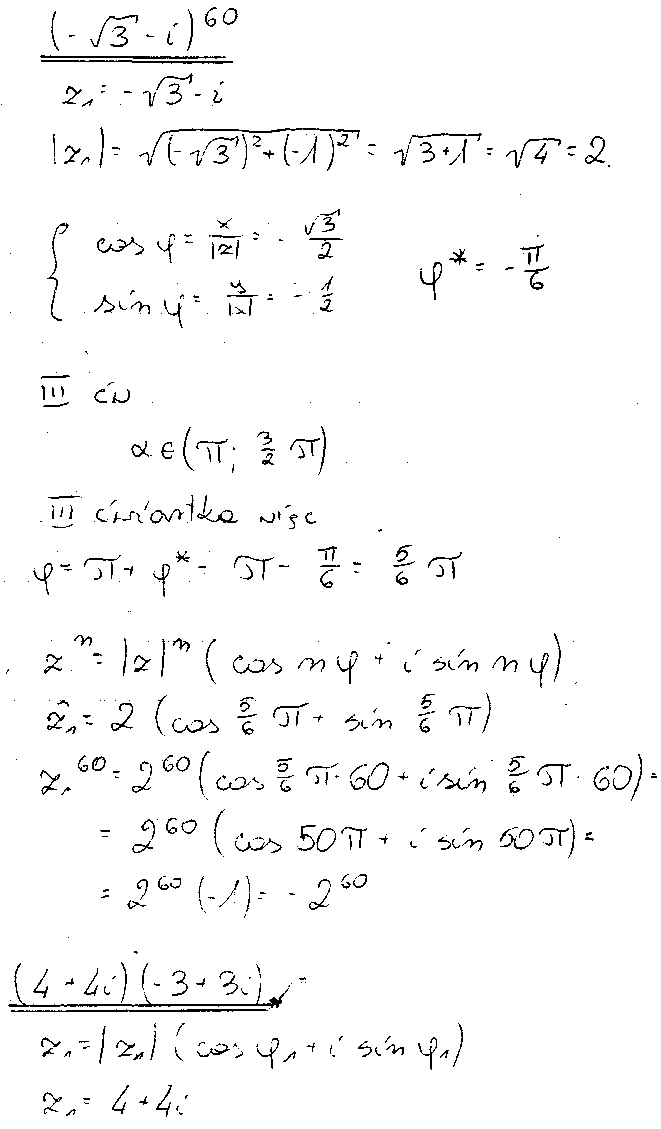 (-√3 - i)^60
z₁ = -√3 - i
|z₁| = √((-√3)² + (-1)²) = √(3+1) = √4 = 2.
cos φ = x/|z| = - √3/2
sin φ = y/|z| = - 1/2
φ* = - π/6
III ćw
α ∈ (π; 3/2 π)
III ćwiartka więc
φ = π + φ* = π - π/6 = 5/6 π
z^n = |z|^n (cos nφ + i sin nφ)
ẑ₁ = 2 (cos 5/6 π + sin 5/6 π)
z₁^60 = 2^60 (cos 5/6 π · 60 + i sin 5/6 π · 60) =
= 2^60 (cos 50π + i sin 50π) =
= 2^60 (-1) = - 2^60
(4 + 4i)(-3 + 3i) =
z₁ = |z₁| (cos φ₁ + i sin φ₁)
z₁ = 4 + 4i